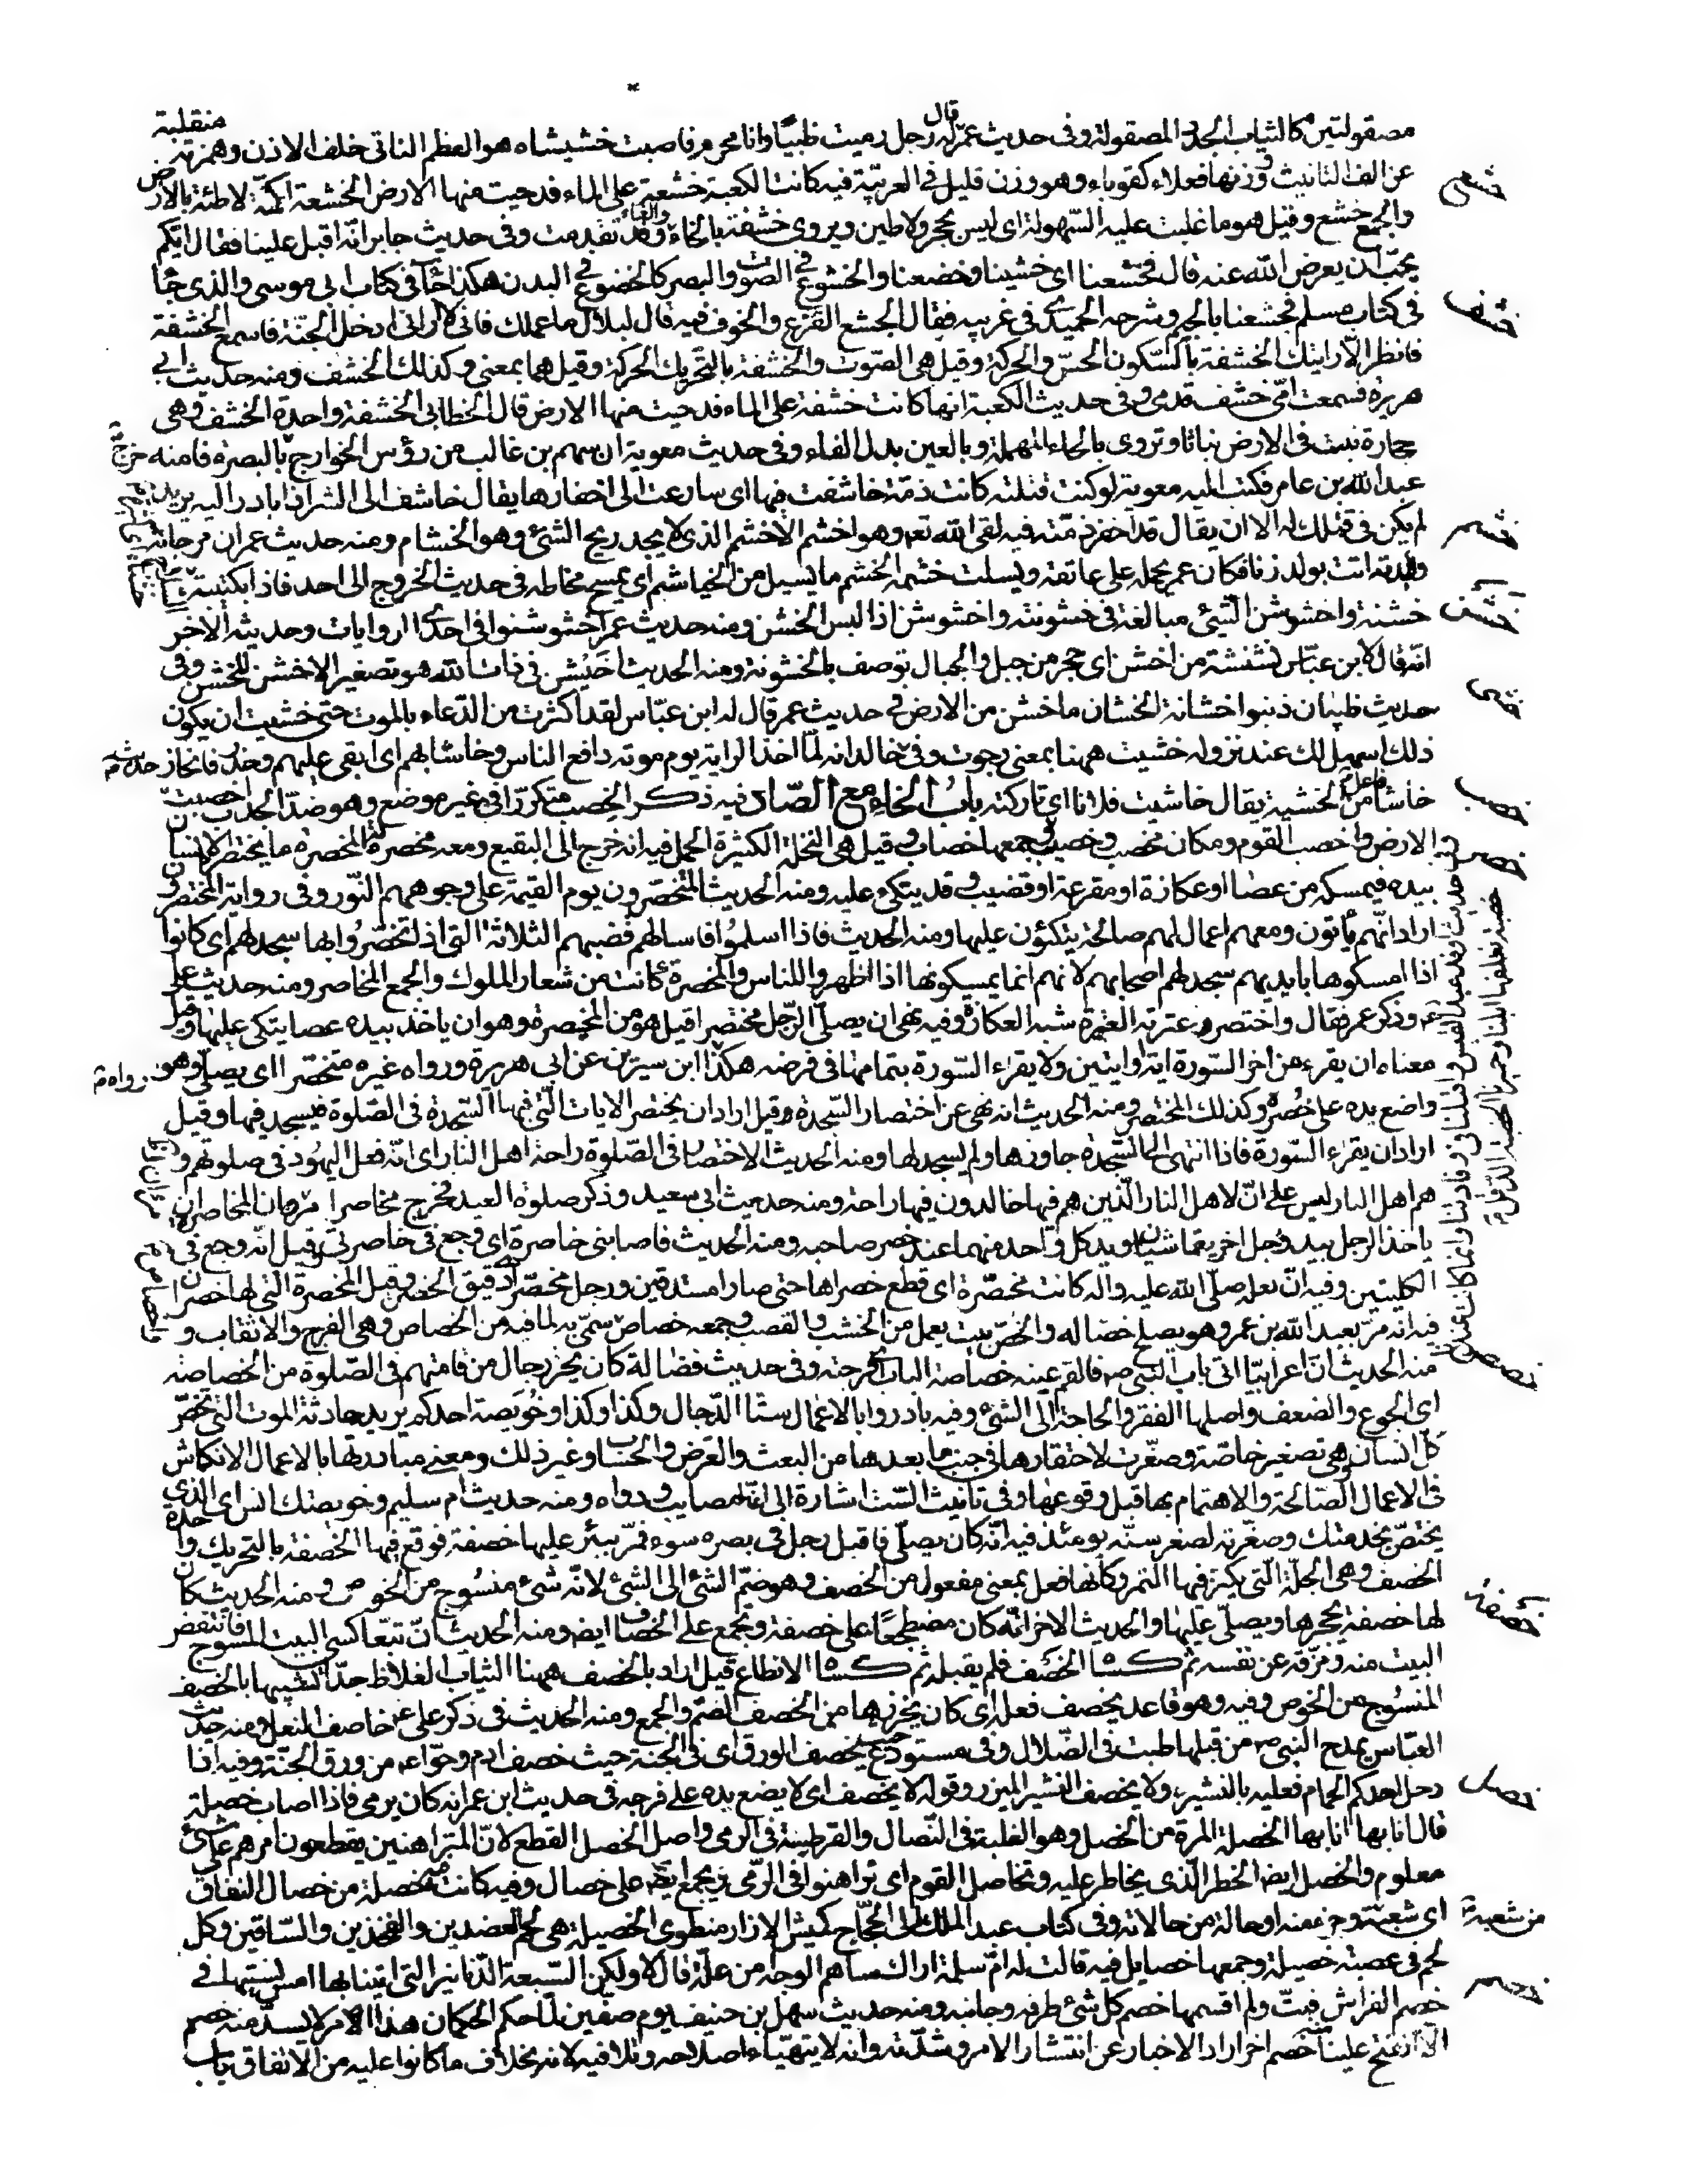 مصقولتين كالثياب الجدد المصقولة وفى حديث عمر قال له رجل رميت ظبيًا وانا محرم فاصبت خششاه هو العظم الناتى خلف الاذن وهمزته منقلبة
عن الف التانيث ووزنها فعلاء كقوباء وهو وزن قليل فى العربيّة فيه كانت الكعبة خشعة على الماء فدحيت منها الارض الخشعة اكمة لاطئة بالارض
خشع
والجمع خشع وقيل هو ما غلبت عليه السّهولة اى ليس بحجر ولا طين ويروى خشفة بالخاء والفاء وقد تقدمت وفى حديث جابر انّه اقبل علينا فقال ايكم
يحبّ ان يعرض الله عنه قال فخشعنا اى خشينا وخضعنا والخشوع فى الصوت والبصر كالخضوع فى البدن هكذا جاء فى كتاب ابى موسى والذى جاء
فى كتاب مسلم فجشعنا بالجيم وشرحه الحميدى فى غريبه فقال الجشع الفزع والخوف فيه قال لبلال ما عملك فانى لا ارانى ادخل الجنّة فاسمع الخشفة
خشف
فانظر الّا رايتك الخشفة بالسّكون الحسّ والحركة وقيل هى الصّوت والخشفة بالتّحريك الحركة وقيل هما بمعنى وكذلك الخشف ومنه حديث ابى
هريرة فسمعت امّى خشف قدمى وفى حديث الكعبة انها كانت خشفة على الماء فدحيت منها الارض قال الخطابى الخشفة واحدة الخشف وهى
حجارة تنبت فى الارض نباتا وتروى بالحاء المهملة وبالعين بدل الفاء وفى حديث معوية ان سهم بن غالب من رؤس الخوارج خرج بالبصرة فامنه
عبد الله بن عامر فكتب اليه معوية لو كنت قتلته كانت ذمّة خاشفت فيها اى سارعت الى اخفارها يقال خاشف الى الشر اذا بادر اليه يريد
لم يكن فى قتلك له الا ان يقال قد اخفر ذمّته فيه لقى الله تع وهو اخشم الاخشم الذى لا يجد ريح الشئ وهو الخشام ومنه حديث عمر ان مرجانة
خشم
وليدته اتت بولد زنا فكان عمر يحمله على عاتقه ويسلت خشمه الخشم ما يسيل من الخياشم اى يمسح مخاطه فى حديث الخروج الى احد فاذا بكتيبة
خشنة واخشوشن الشئ مبالغة فى خشونته واخشوشن اذا لبس الخشن ومنه حديث عمر اخشوشنوا فى احدى الروايات وحديثه الآخر
خشن
انّه قال لابن عبّاس نشنشة من اخشن اى حجر من جبل والجبال توصف بالخشونة ومنه الحديث اخَيْشن فى ذات الله هو تصغير الاخشن للخشن وفى
حديث ظبيان ذنبوا خشانة الخشان ما خشن من الارض فى حديث عمر قال له ابن عبّاس لقد اكثرت من الدّعاء بالموت حتى خشيت ان يكون
خشى
ذلك اسهل لك عند نزوله خشيت ههنا بمعنى رجوت وفى حديث خالد انه لمّا اخذ الراية يوم موته دافع الناس وخاشا بهم اى ابقى عليهم وحذر فانحاز
خاشا فاعل من الخشية يقال خاشيت فلانا اى تاركته باب الخاء مع الصّاد فيه ذكر الخصب متكررًا فى غير موضع وهو ضدّ الجدب اخصبت
خصب
الارض واخصب القوم ومكان مخصب وخصيب وجمعها خصاب وقيل هى النخلة الكثيرة الحمل فيه انه خرج الى البقيع ومعه مخصرة له المخصرة ما يختصره الانسان
خصر
بيده فيمسكه من عصا او عكازة او مقرعة او قضيب وقد يتكئ عليه ومنه الحديث المتخصّرون يوم القيمة على وجوههم النّور وفى رواية المختصرون
اراد انّهم يأتون ومعهم اعمال لهم صالحة يتكئون عليها ومنه الحديث فاذا اسلموا فاسالهم قضبهم الثلاثة التى اذا تخصّروا بها سجد لهم اى كانوا
اذا امسكوها بايديهم سجد لهم اصحابهم لانهم انما يمسكونها اذا ظهروا للناس والمخصرة كانت من شعار الملوك والجمع المخاصر ومنه حديث على
ع وذكر عمر فقال واختصر عنزته العنزة شبه العكازة وفيه نهى ان يصلّى الرّجل مختصرا قيل هو من المخصرة وهو ان ياخذ بيده عصا يتكى عليها وقيل
معناه ان يقرء من اخر السّورة اية او ايتين ولا يقراء السّورة بتمامها فى فرضه هكذا رواه ابن سيرين عن ابى هريرة ورواه غيره متخصّرا اى يصلّى وهو
واضع يده على خصره وكذلك المختصر ومنه الحديث انه نهى عن اختصار السّجدة قيل اراد ان يختصر الايات الّتى فيها السّجدة فى الصّلوة فيسجد فيها وقيل
اراد ان يقراء السّورة فاذا انتهى الى السّجدة جاوزها ولم يسجد لها ومنه الحديث الاختصار فى الصّلوة راحة اهل النار اى انّه فعل اليهود فى صلوتهم و
هم اهل النار ليس على انّ لاهل النار الّذين هم فيها خالدون فيها راحة ومنه حديث ابى سعيد وذكر صلوة العيد فخرج مخاصرا مروان المخاصرة ان
ياخذ الرجل بيد رجل اخر يتماشيان ويد كل واحد منهما عند خصر صاحبه ومنه الحديث فاصابنى خاصرة اى وجع فى خاصرتى قيل انّه وجع فى
الكليتين وفيه انّ نعله صلّى الله عليه واله كانت مخصّرة اى قطع خصراها حتى صارا مستدقين ورجل مخصّر دقيق الخصر وقيل المخصرة التى لها خصران
فيه انه مرّ بعبد الله بن عمرو وهو يصلح خصّا له والخصّ بيت يعمل من الخشب والقصب وجمعه خصاص سمّى به لما فيه من الخصاص وهى الفرج والانقاب و
خصص
منه الحديث انّ اعرابيّا اتى باب النبى ص فالقم عينه خصاصة الباب اى فرجته وفى حديث فضالة كان يخر رجال من قامتهم فى الصّلوة من الخصاصة
اى الجوع والضعف واصلها الفقر والحاجة الى الشئ وفيه بادروا بالاعمال ستّا الدّجال وكذا وكذا وخُوَيصة احدكم يريد حادثة الموت التى تخصّ
كلّ انسان وهى تصغير خاصّة وصغّرت لاحتقارها فى جنب ما بعدها من البعث والعرض والحساب وغير ذلك ومعنى مبادرتها بالاعمال الانكماش
فى الاعمال الصّالحة والاهتمام بها قبل وقوعها وفى تانيث السّت اشارة الى انّها مصايب ودواه ومنه حديث امّ سليم وخويصتك انس اى الذى
يختصّ بخدمتك وصغّرته لصغر سنّه يومئذ فيه انّه كان يصلّى فاقبل رجل فى بصره سوء فمرّ ببئر عليها خصفة فوقع فيها الخصفة بالتحريك واحدة
الخصف وهى الجلّة الّتى يكنز فيها التمر وكانها فعل بمعنى مفعول من الخصف وهو ضمّ الشئ الى الشئ لانّه شئ منسوج من الخوص ومنه الحديث كان
خصف
لها خصفة يحجرها ويصلّى عليها والحديث الاخر انّه كان مضطجعًا على خصفة وتجمع على الخصاف ايض ومنه الحديث انّ تبّعا كسى البيت المسوح فانتفض
البيت منه ومزّقه عن نفسه ثم كساه الخصف فلم يقبله ثم كساه الانطاع قيل اراد بالخصف ههنا الثياب الغلاظ جدّا تشبيها بالخصف
المنسوج من الخوص وفيه وهو قاعد يخصف نعله اى كان يخرزها من الخصف الضمّ والجمع ومنه الحديث فى ذكر على ع خاصف النعل ومنه حديث
العبّاس يمدح النبى ص من قبلها طبت فى الظلال وفى مستودع حيث يخصف الورق اى فى الجنة حيث خصف ادم وحوّاء من ورق الجنّة وفيه اذا
دخل احدكم الحمام فعليه بالنشير ولا يخصف النشير الميزر وقوله لا يخصف اى لا يضع يده على فرجه فى حديث ابن عمر انه كان يرمى فاذا اصاب خصلة
خصل
قال انا بها انا بها الخصلة المرة من الخصل وهو الغلبة فى النّضال والقرطسة فى الرّمى واصل الخصل القطع لانّ المتراهنين يقطعون امرهم على شئ
معلوم والخصل ايض الخطر الّذى يخاطر عليه وتخاصل القوم اى تراهنوا فى الرّمى ويجمع ايض على خصال وفيه كانت فيه خصلة من خصال النفاق
اى شعبة وجزء منه او حالة من حالاته وفى كتاب عبد الملك الى الحجّاج كميش الازار منطوى الخصيلة هى لحم العضدين والفخذين والسّاقين وكل
من شعبه
لحم فى عصبة خصيلة وجمعها خصايل فيه قالت له امّ سلمة اراك ساهم الوجه من علّة قال لا ولكن السّبعة الدّنانير التى اتينا بها امس نسيتها فى
خصم
خصم الفراش فبتّ ولم اقسمها خصم كل شئ طرفه وجانبه ومنه حديث سهل بن حنيف يوم صفّين لمّا حكم الحكمان هذا الامر لا يسدّ منه خصم
الّا انفتح علينا منه خصم اخر اراد الاخبار عن انتشار الامر وشدّته وانه لا يتهيّاء اصلاحه وتلافيه لانه بخلاف ما كانوا عليه من الاتفاق باب